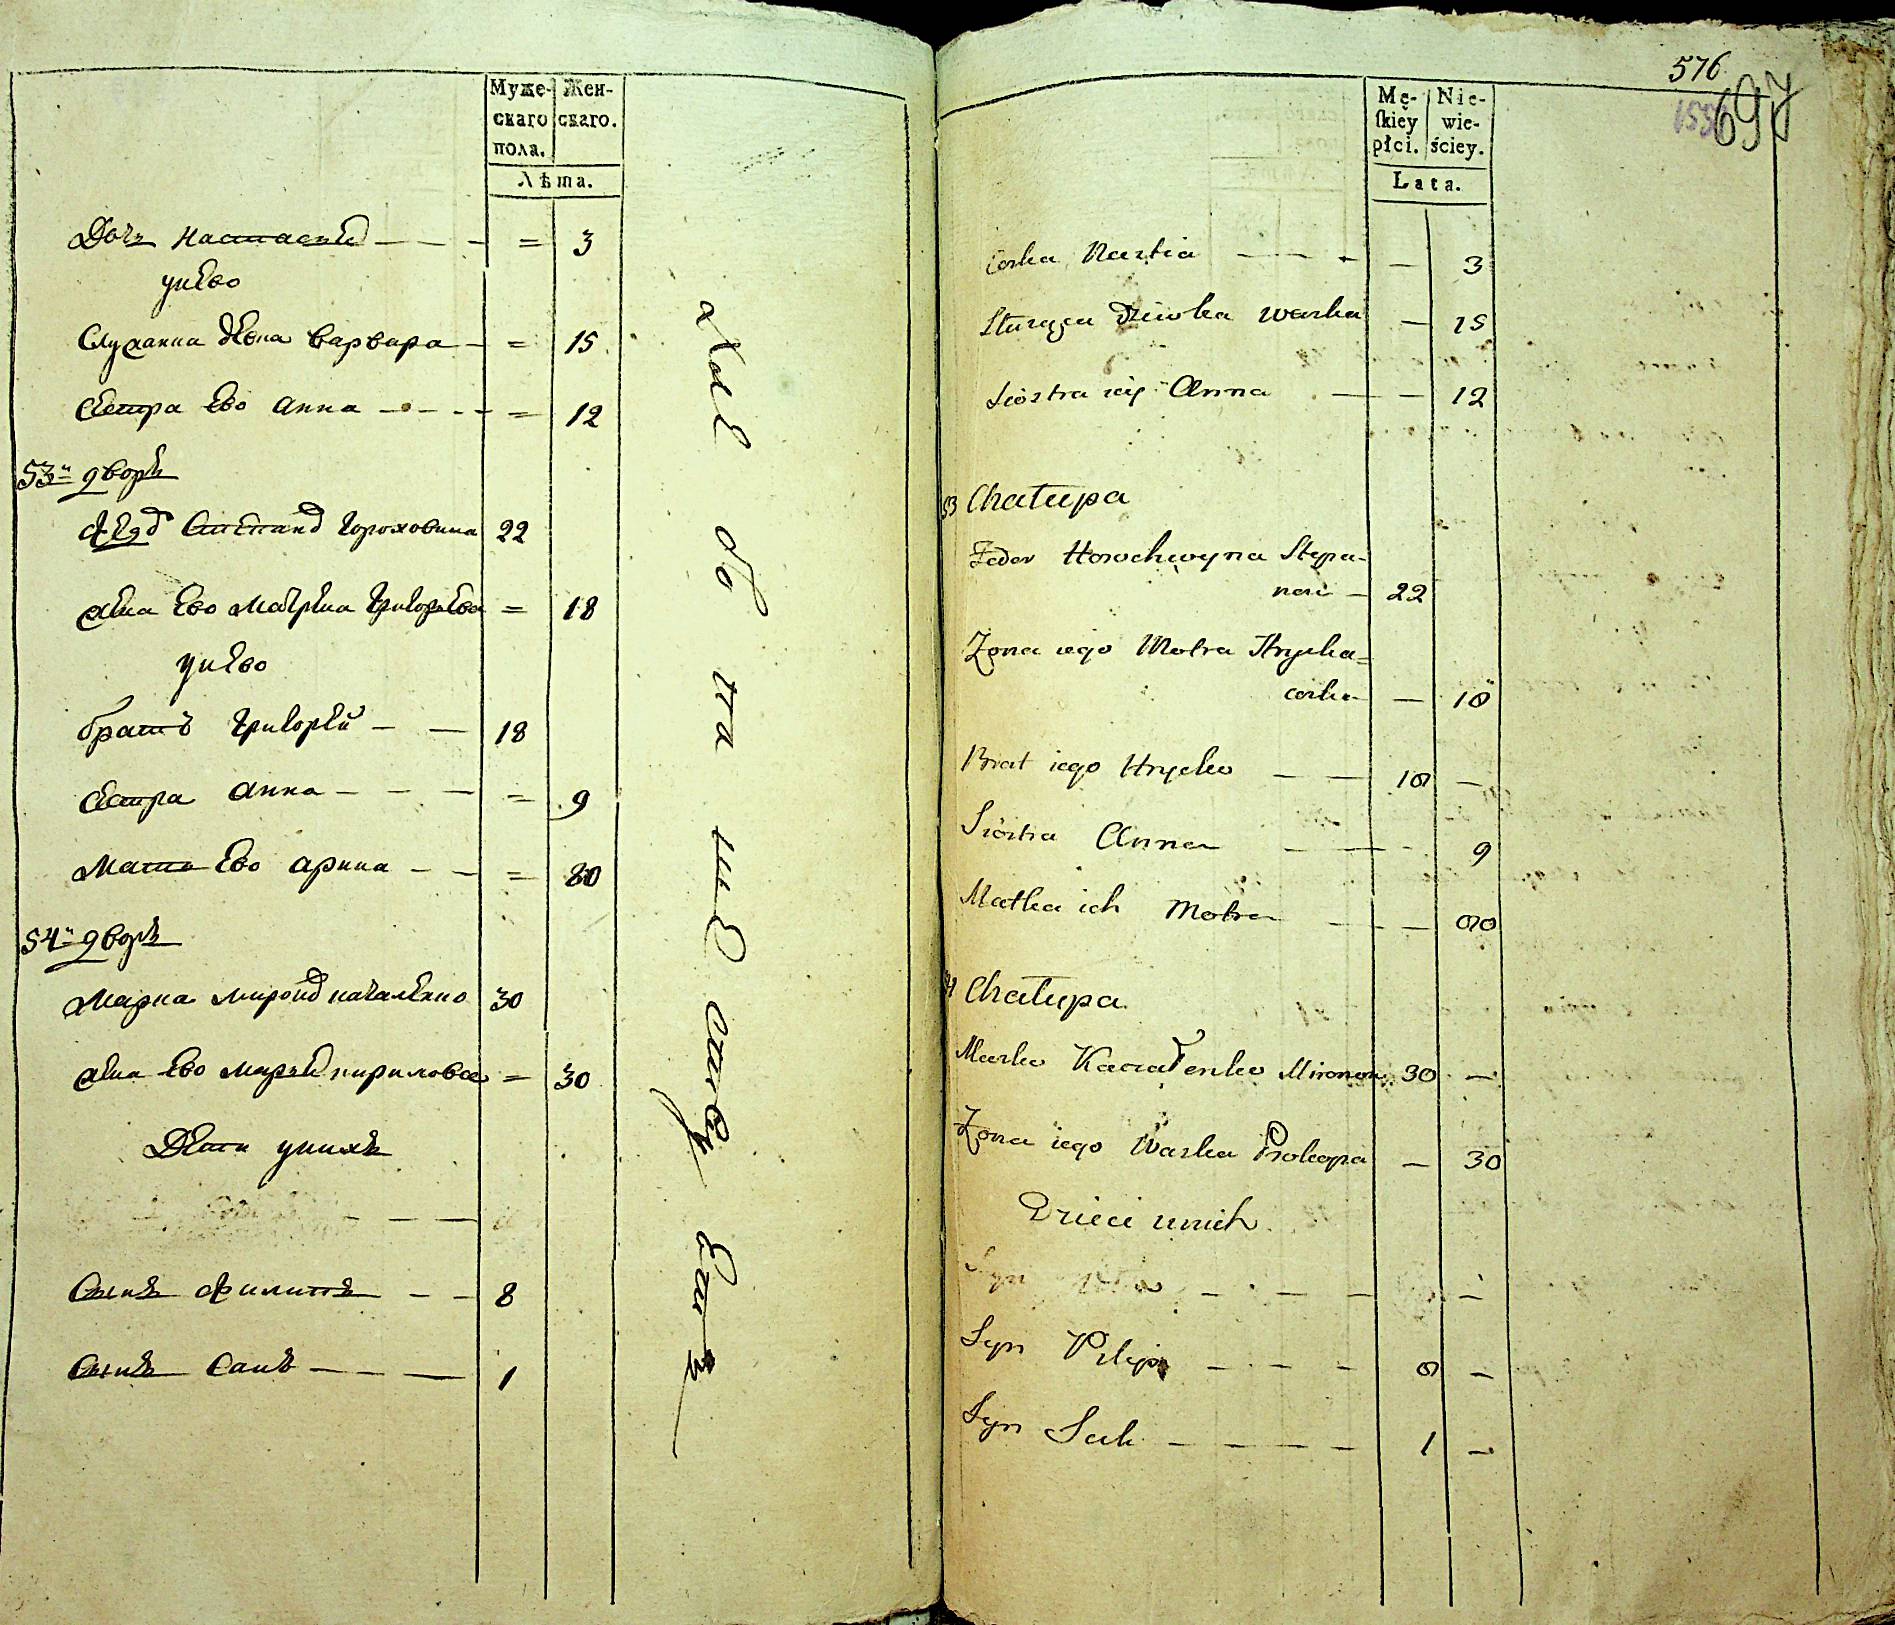 Муже-
скаго
пола.
Жен-
скаго.
Лѣта.
Дочь Настасия — — - = 3
у него
Служанка дѣвка Варвара — = 15
Сестра Ево Анна — - - - = 12
53й дворъ
Федоръ Степановъ Гороховина 22
Жена Ево Матрена Григорьева = 18
у него
братъ Григорей — — 18
Сестра Анна — — — = 9
Мать Ево Арина — — = 80
54й дворъ
Марка Миронов качаленко 30
Жена Ево Марья кирилова = 30
Дети у нихъ
Сынъ Филипъ — — 8
Сынъ Сакъ — — — 1
576
697
Mę-
skiey
płci.
Nie-
wie-
ściey.
Lata.
Corka Nastia — — - - — 3
Służąca Dziewka Warka — 15
Siostra iey Anna — — 12
53 Chałupa
Fedor Horochwyna Stepa-
now — 22
Żona iego Motra Hrycka=
corka — 18
Brat iego Hrycko — — 18 —
Siostra Anna — — - 9
Matka ich Motra — — — 80
54 Chałupa
Marko Kaczałenko Mironow 30 —
Żona iego Warka Prokopa — 30
Dzieci u nich
Syn — - — — —
Syn Pilip — - — - 8 —
Syn Sak — — — — 1 —